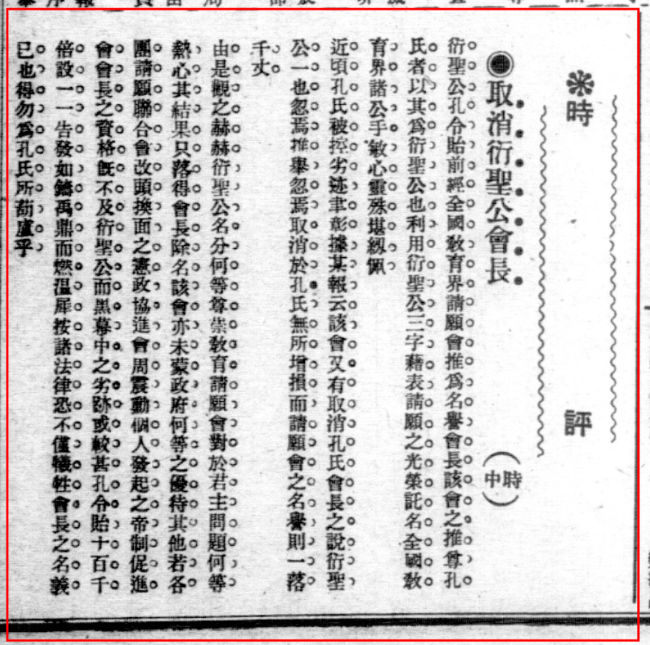 時評
取消衍聖公會長
(時中)
衍聖公孔令貽前經全國敎育界請願會推爲名譽會長該會之推尊孔
氏者以其爲衍聖公也利用衍聖公三字藉表請願之光榮託名全國敎
育界諸公手敏心靈殊堪紉佩
近頃孔氏被控劣迹聿彰據某報云該會又有取消孔氏會長之說衍聖
公一也忽焉推舉忽焉取消於孔氏無所增損而請願會之名譽則一落
千丈
由是觀之赫赫衍聖公名分何等尊崇敎育請願會對於君主問題何等
熱心其結果只落得會長除名該會亦未蒙政府何等之優待其他若各
團請願聯合會改頭換面之憲政協進會周震勳個人發起之帝制促進
會會長之資格旣不及衍聖公而黑幕中之劣跡或較甚孔令貽十百千
倍設一一告發如鑄禹鼎而燃溫犀按諸法律恐不僅犧牲會長之名義
已也得勿爲孔氏所葫盧乎